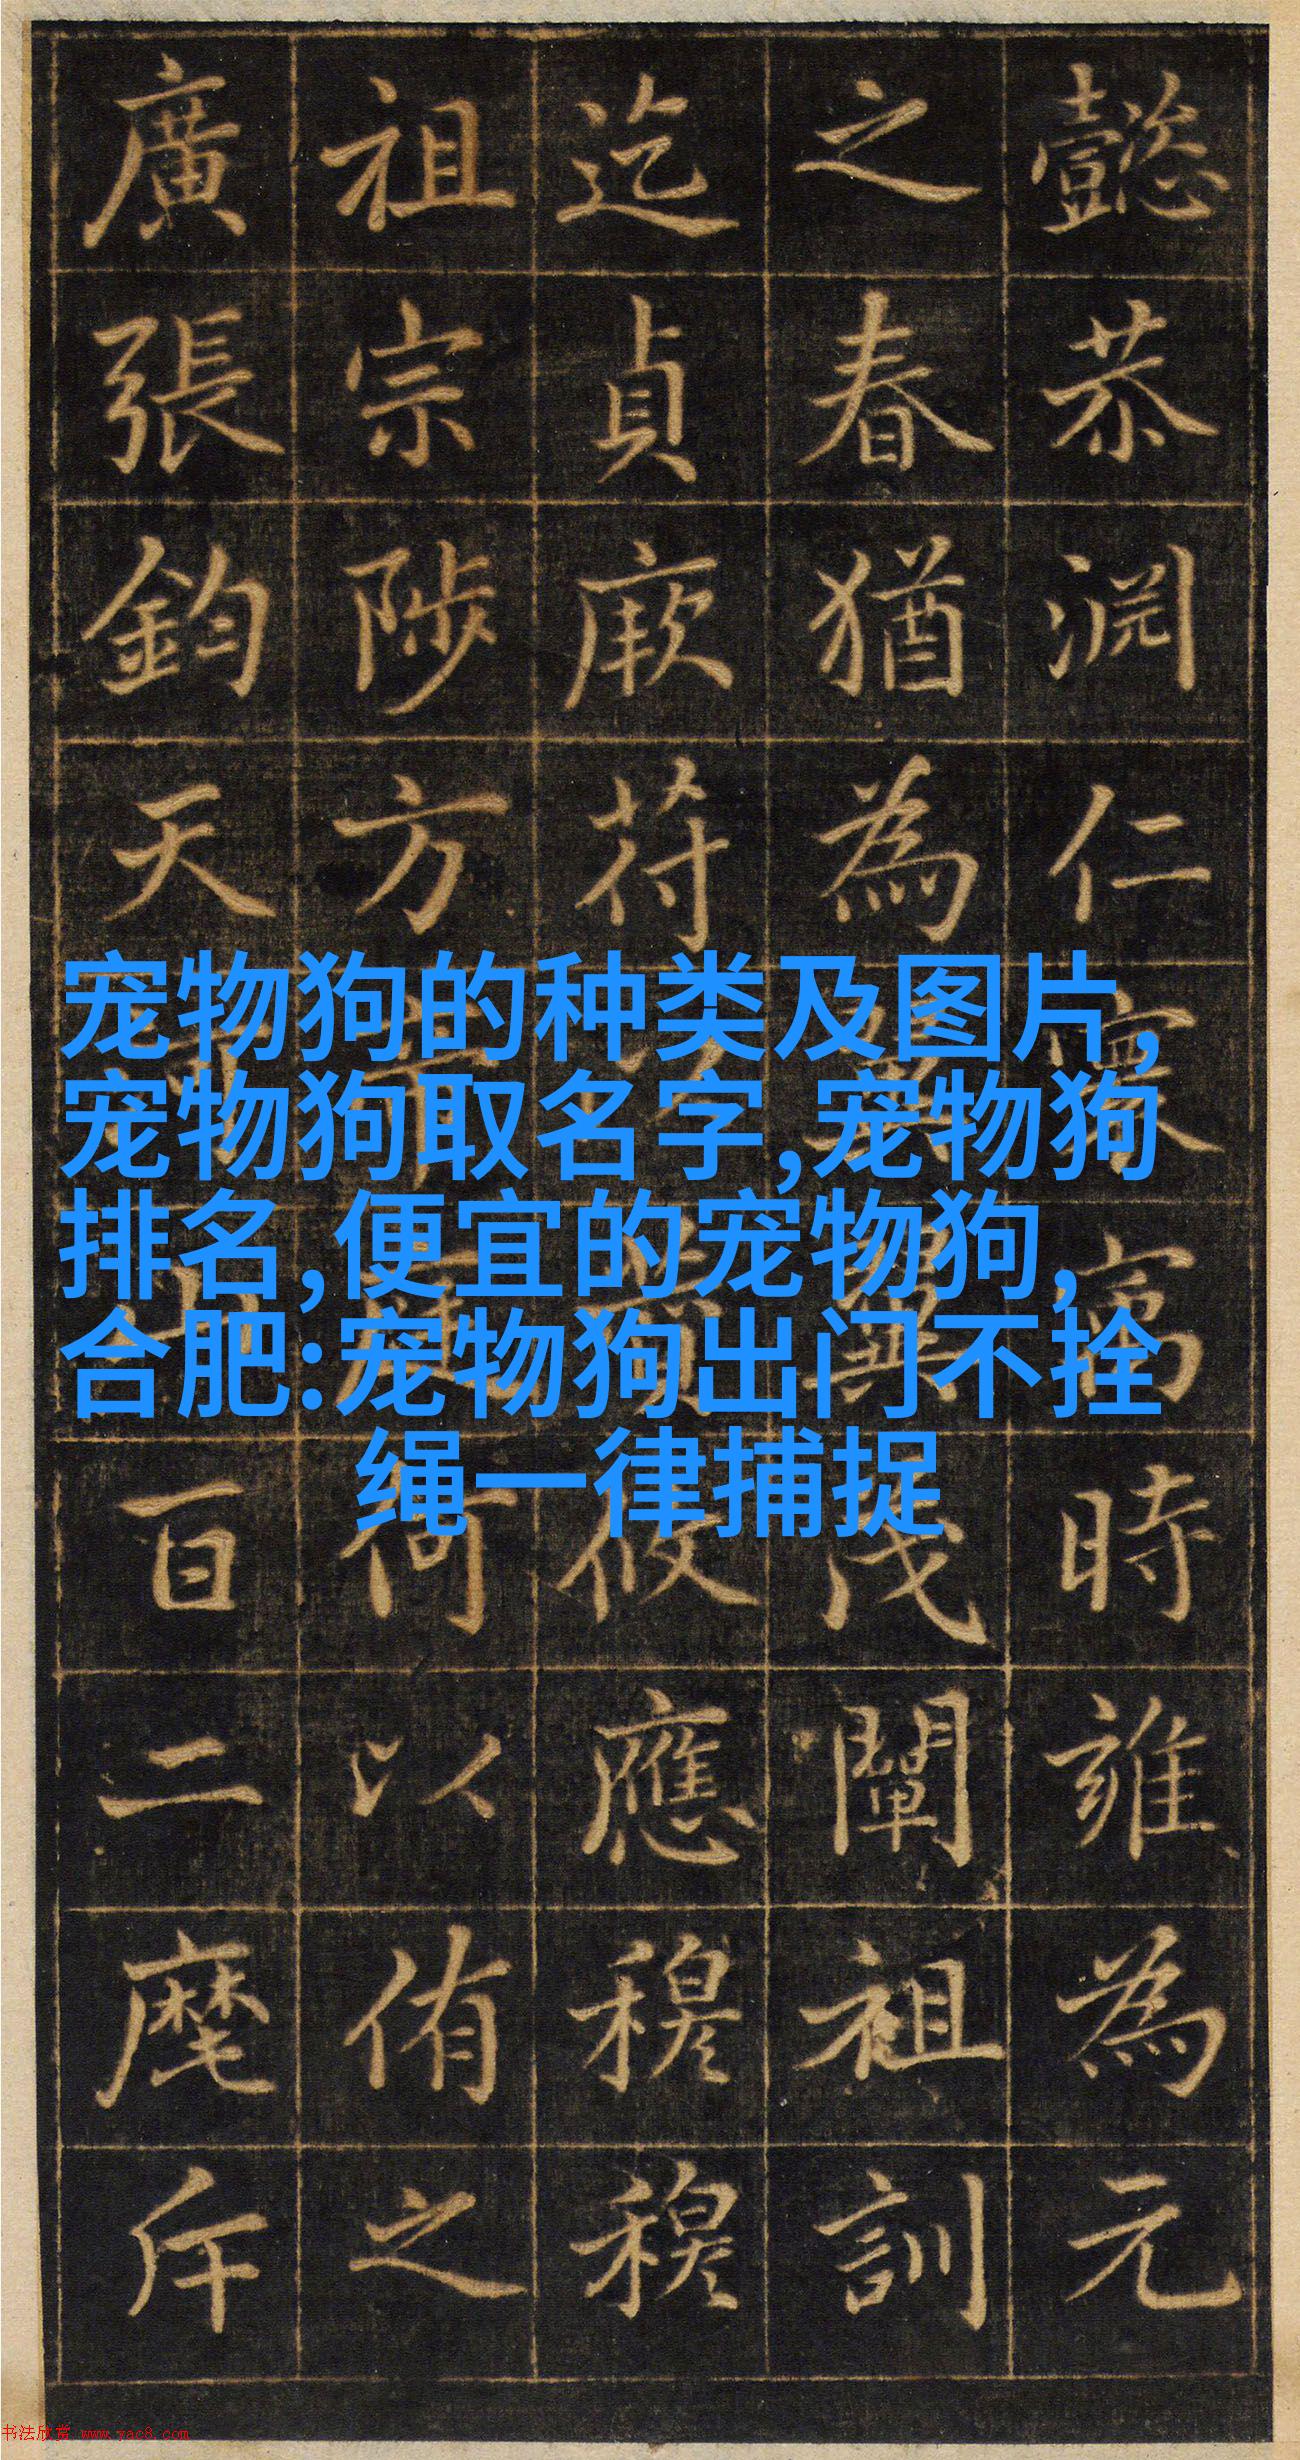 懿恭淵仁寰寓時雍為元
之春猶為茂闡祖訓
迄貞厥符攸應穆穆
祖宗陟方何以侑之
廣張鈞天百二麾斥
宠物狗的种类及图片,
宠物狗取名字,宠物狗
排名,便宜的宠物狗,
合肥:宠物狗出门不拴
绳一律捕捉
书法欣赏 www.yac8.com